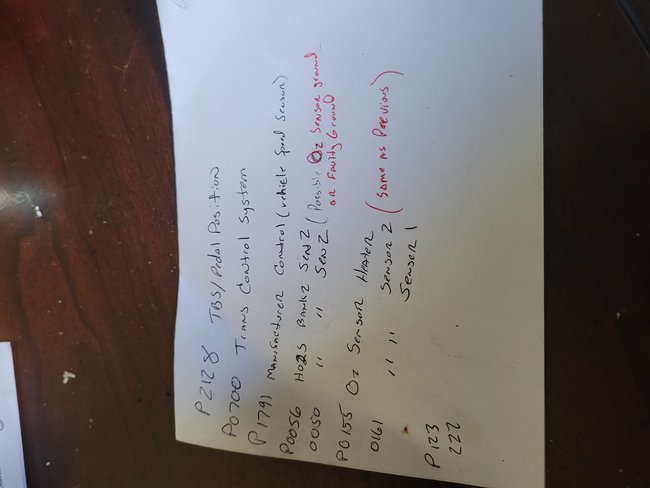 P2128 TBS/Pedal Position
P0700 Trans Control System
P1791 Manufacturer Control (vehicle speed sensor)
P0056 HO2S Bank2 Sen2 (Possible O2 Sensor ground
0050 " " Sen2 or Faulty Ground
P0155 O2 Sensor Heater
0161 " " Sensor 2 (Same as Previous)
Sensor 1
P123
222